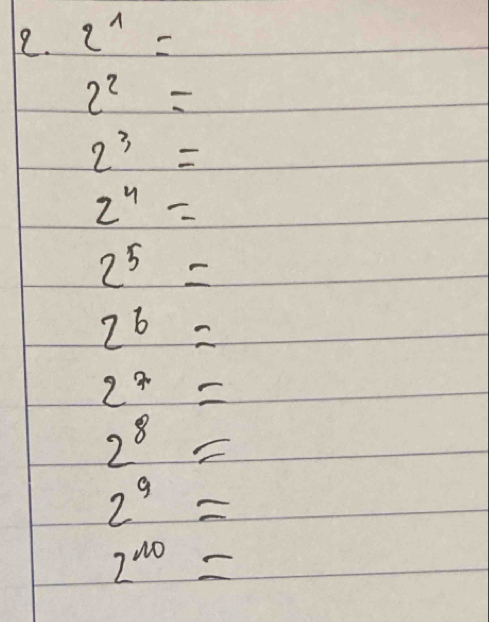 2. 2¹ =
2² =
2³ =
2⁴ =
2⁵ =
2⁶ =
2⁷ =
2⁸ =
2⁹ =
2¹⁰ =